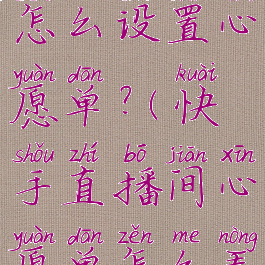 怎么设置心
yuàn dān kuài
愿单?(快
shǒu zhí bō jiān xīn
手直播间心
yuàn dān zěn me nòng
愿单怎么弄